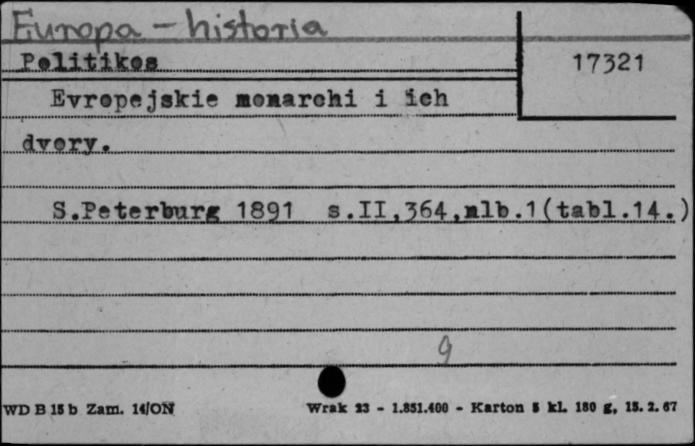 Europa - historia
Politikos
17321
Evropejskie monarchi i ich
dvory.
S.Peterburg 1891 s.II,364,nlb.1(tabl.14.)
9
WD B 15 b Zam. 14/ON Wrak 23 - 1.851.400 - Karton 5 kl. 180 g, 15. 2. 67